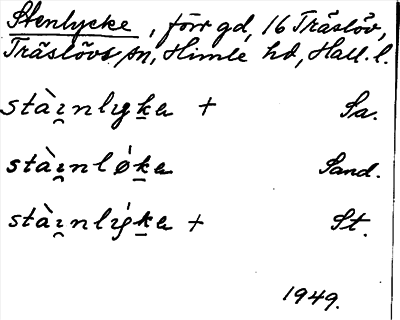 Stenlycke, förr gd, 16 Träslöv,
Träslövs sn, Himle hd, Hall. l.
stàı̯nlyka + Sa.
stàı̯nlǿka Sand.
stàı̯nlýka + St.
1949.